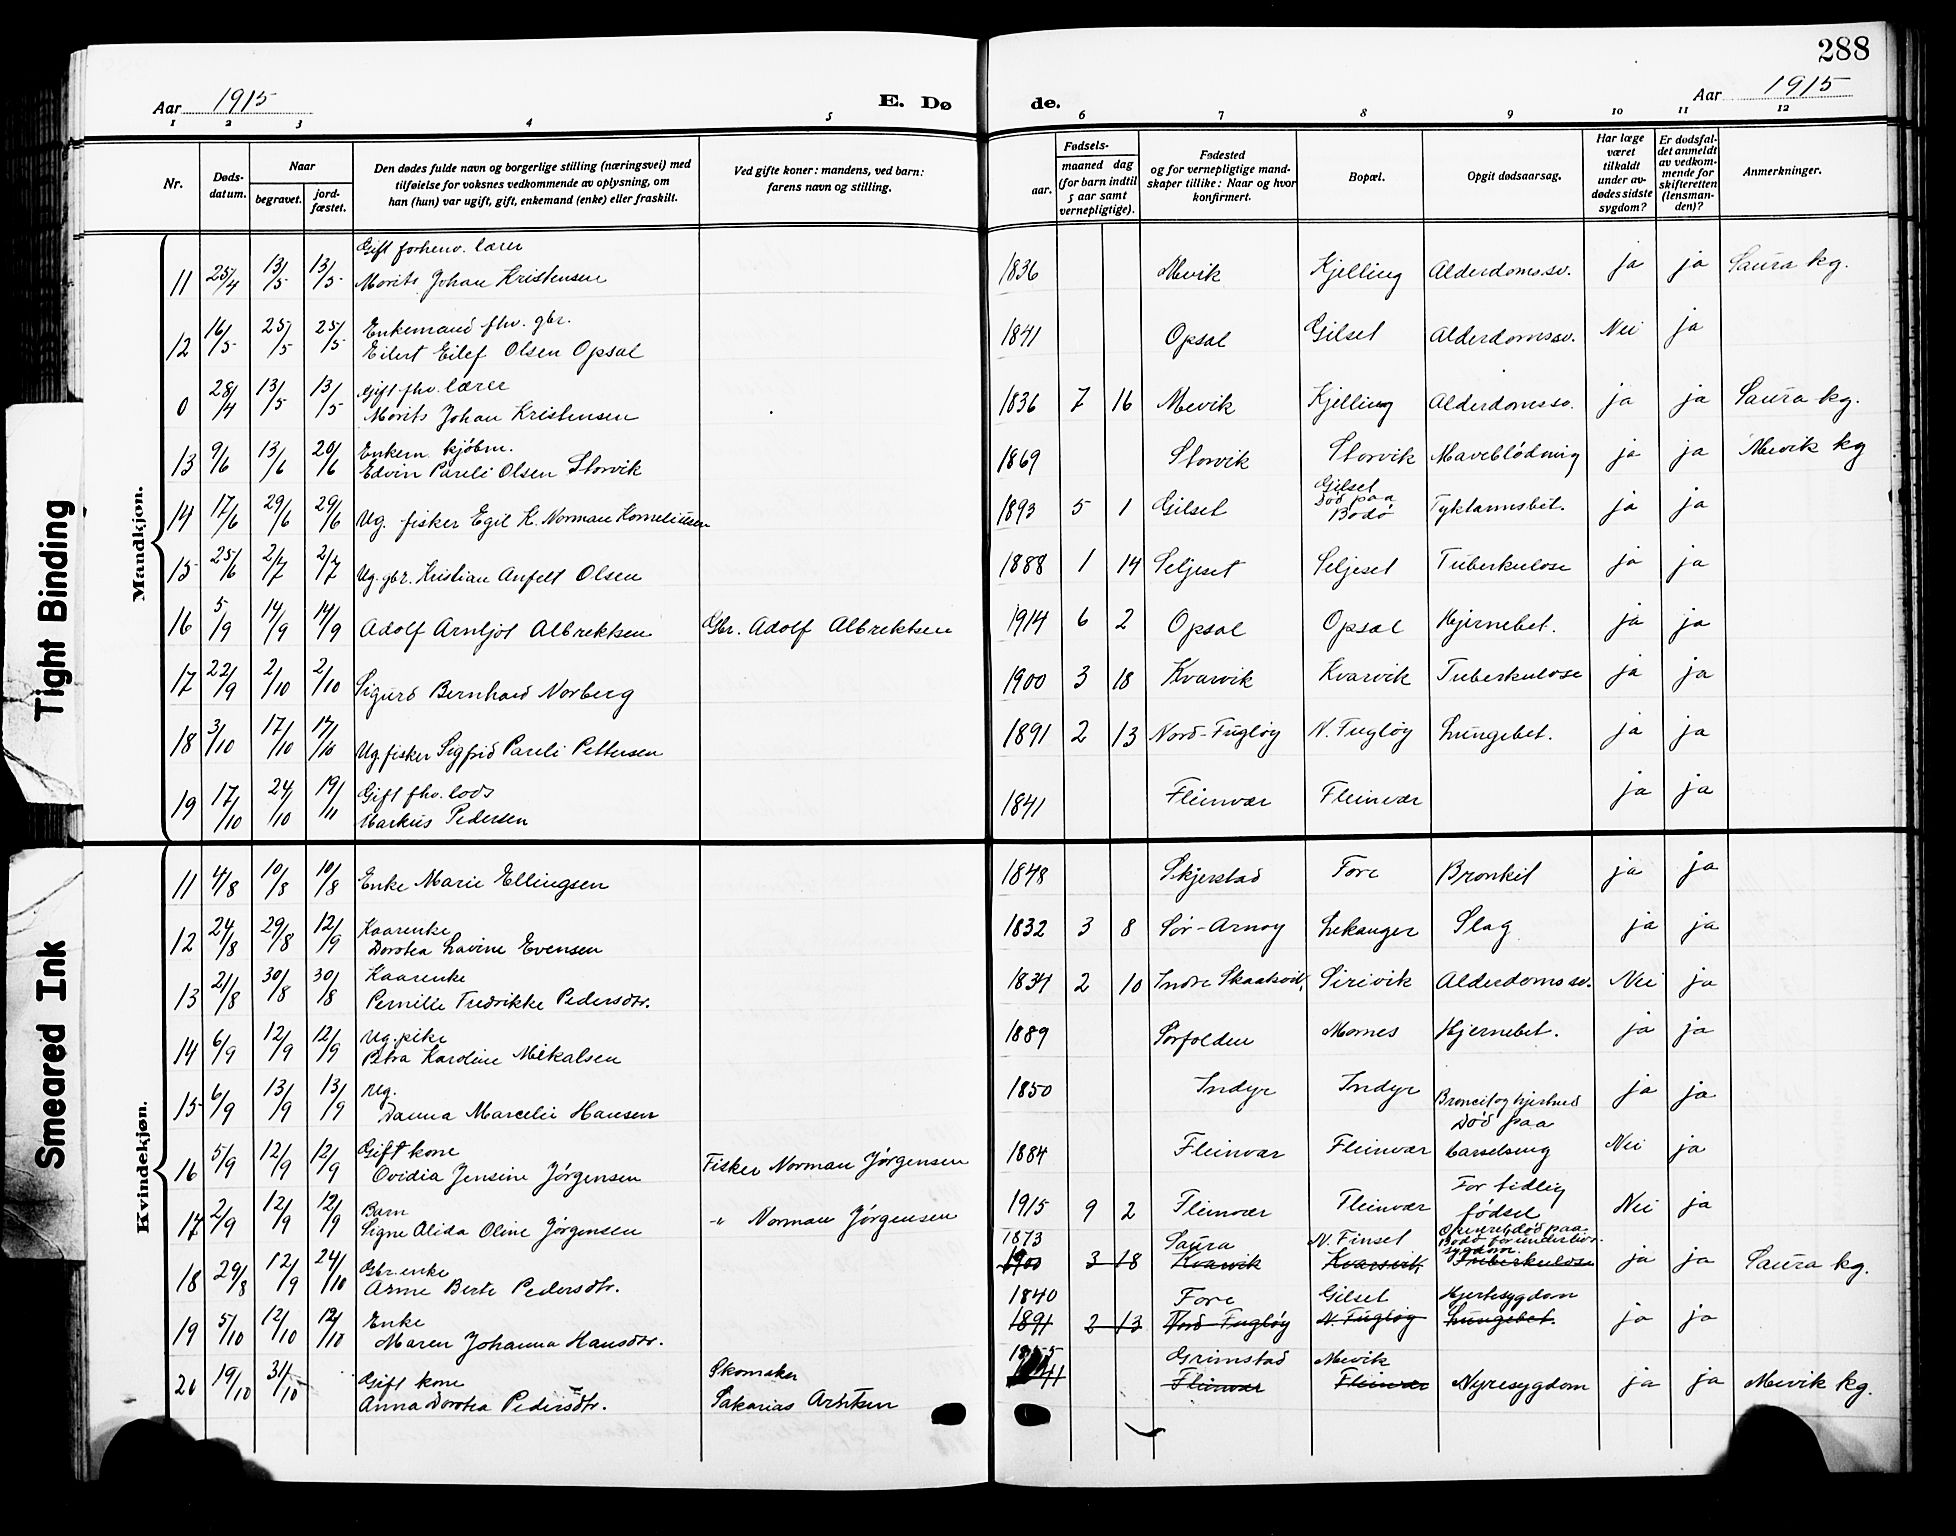 288
Aar 1915
E. Dø
de.
Aar 1915
1 2 3 4 5 6 7 8 9 10 11 12
Nr.
Døds-
datum.
Naar
begravet.
jord-
fæstet.
Den dødes fulde navn og borgerlige stilling (næringsvei) med
tilføielse for voksnes vedkommende av oplysning, om
han (hun) var ugift, gift, enkemand (enke) eller fraskilt.
Ved gifte koner: mandens, ved barn:
farens navn og stilling.
Fødsels-
aar.
maaned dag
(for barn indtil
5 aar samt
vernepligtige).
Fødested
og for vernepligtige mand-
skaper tillike: Naar og hvor
konfirmert.
Bopæl.
Opgit dødsaarsag.
Har læge
været
tilkaldt
under av-
dødes sidste
sygdom?
Er dødsfal-
det anmeldt
av vedkom-
mende for
skifteretten
(lensman-
den)?
Anmerkninger.
Mandkjøn.
Gift forhenv. lærer
11 25/4 13/5 13/5 Morits Johan Kristensen 1836 Mevik Kjelling Alderdomssv. ja ja Saura kg.
Enkemand fhv. gbr.
12 16/5 25/5 25/5 Eilert Eilef Olsen Opsal 1841 Opsal Gilset Alderdomssv. Nei ja
Gift fhv. lærer
0 28/4 13/5 13/5 Morits Johan Kristensen 1836 7 16 Mevik Kjelling Alderdomssv. ja ja Saura kg.
Enkem. kjøbm.
13 9/6 13/6 20/6 Edvin Pareli Olsen Storvik 1869 Storvik Storvik Maveblödning ja ja Mevik kg
14 17/6 29/6 29/6 Ug. fisker Egil K. Norman Korneliusen 1893 5 1 Gilset Gilset
död paa
Bodö Tyktarmsbet. ja ja
15 25/6 2/7 2/7 Ug. gbr. Kristian Anfelt Olsen 1888 1 14 Seljeset Seljeset Tuberkulose ja ja
16 5/9 14/9 14/9 Adolf Arnljot Albrektsen Gbr. Adolf Albrektsen 1914 6 2 Opsal Opsal Hjernebet. ja ja
17 22/9 2/10 2/10 Sigurd Bernhard Norberg 1900 3 18 Kvarvik Kvarvik Tuberkulose ja ja
18 3/10 17/10 17/10 Ug. fisker Sigfrid Pareli Pettersen 1891 2 13 Nord-Fugløy N. Fugløy Lungebet. ja ja
Gift fhv. lods
19 17/10 24/10 19/11 Markus Pedersen 1841 Fleinvær Fleinvær ja ja
Kvindekjøn.
11 4/8 10/8 10/8 Enke Marie Ellingsen 1848 Skjerstad Fore Bronkit ja ja
Kaarenke
12 24/8 29/8 12/9 Dorotea Lavine Evensen 1832 3 8 Sør-Arnøy Lekanger Slag ja ja
Kaarenke
13 21/8 30/8 30/8 Pernille Fredrikke Pedersdtr. 1834 2 10 Indre Sirivik Alderdomssv. Nei ja
Ug. pike
14 6/9 12/9 12/9 Petra Karoline Mikalsen 1889 Sørfolden Mornes Hjernebet. ja ja
Ug.
15 6/9 13/9 13/9 Danna Marcelie Hansen 1850 Indyr Indyr ja ja
Gift kone
16 5/9 12/9 12/9 Ovidia Jensine Jörgensen Fisker Norman Jörgensen 1884 Fleinvær Fleinvær Död paa
barselseng Nei ja
Barn
17 2/9 12/9 12/9 Signe Alida Oline Jörgensen -"- Norman Jörgensen 1915 9 2 Fleinvær Fleinvær For tidlig
födsel Nei ja
Gbr. enke
18 29/8 12/9 24/10 Anne Berte Pedersdtr. 1873 Saura N. Finset Opereret död paa
Bodö for underlivs-
sygdom.
1900 3 18 Kvarvik Kvarvik Tuberkulose ja ja Saura kg.
Enke
19 5/10 12/10 12/10 Maren Johanna Hansdtr. 1840 Fore Gilset Hjertesygdom
1891 2 13 Nord-Fugløy N. Fugløy Lungebet. ja ja
Gift kone Skomaker
20 19/10 31/10 Anna Dorotea Pedersdtr. Sakarias Grimstad Mevik
Fleinvær Fleinvær Nyresygdom ja ja Mevik kg.
Tight Binding
Smeared Ink